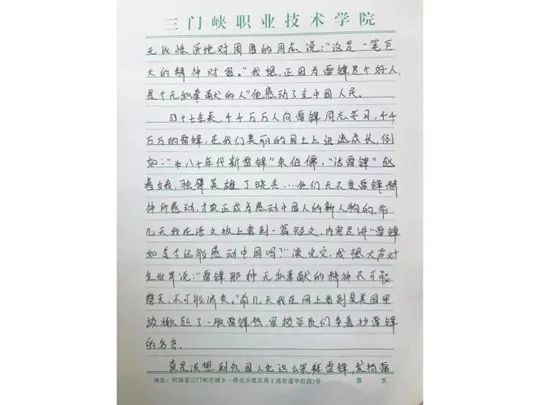 三门峡职业技术学院
无比炼 地对周围的同志说:"这是一笔巨
大的精神财富。"我想,正因为雷锋是个好人,
是个无私奉献的人"他感动了全中国人民。
四十年来,千千万万人向雷锋同志学习,千千
万万的雷锋,在我们美丽的国土上迅速成长,例
如:"八十年代新雷锋"朱伯儒,"活雷锋"赵
春娥,独臂英雄丁晓兵……他们无不受雷锋精
神所感动,才 正成为感动中国人的新人 的。前
几天我在语文报上看到一篇短文,内容是讲"雷锋
如今还能感动中国吗?"读完文,我想大声对
全世界说:"雷锋那种无私奉献的精神不可能
磨灭,不可能消失。"前几天我在网上看到是美国军
校掀起了一股雷锋热,军校学员们拿着抄雷锋
的名言。
真是没想到外国人也这么崇拜雷锋,发扬雷
地址:河南省三门峡市城乡一体化示范区禹王路街道学府路3号 第 页